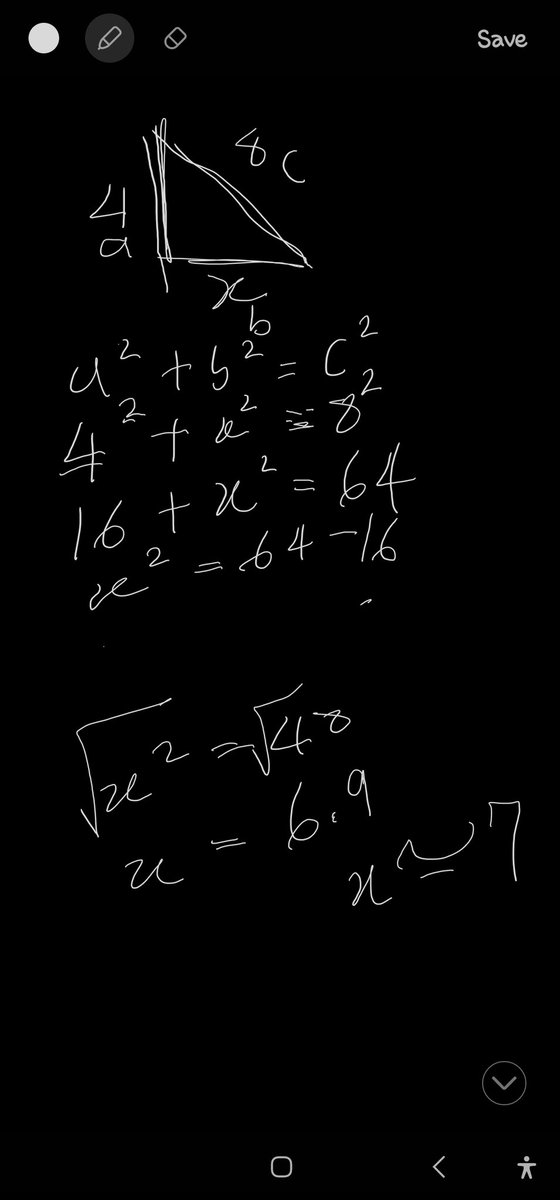 Save
8 c
4
a
x
b
a² + b² = c²
4² + x² = 8²
16 + x² = 64
x² = 64 - 16
√x² = √48
x = 6.9
x ≃ 7